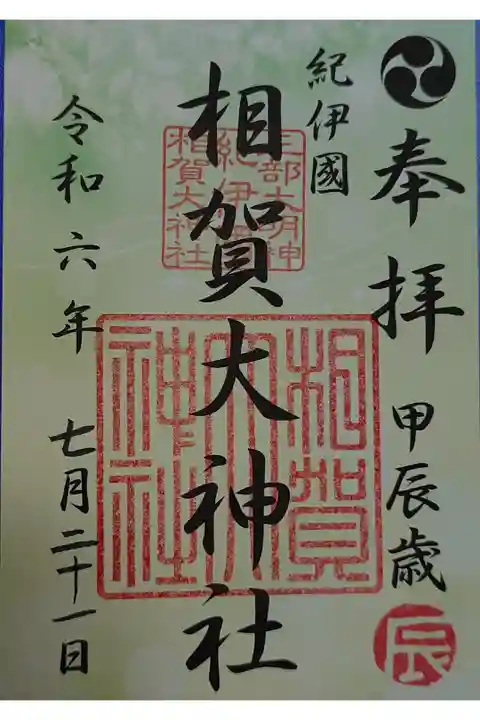 奉拝
甲辰歳
辰
紀伊國
相賀大神社
三部大明神
紀伊国
相賀大神社
相賀大神社
令和六年
七月二十一日